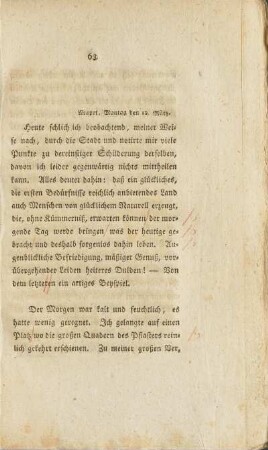 62
Neapel. Montag den 12. März.
Heute schlich ich beobachtend, meiner Wei-
se nach, durch die Stadt und notirte mir viele
Punkte zu dereinstiger Schilderung derselben,
davon ich leider gegenwärtig nichts mittheilen
kann. Alles deutet dahin: daß ein glückliches,
die ersten Bedürfnisse reichlich anbietendes Land
auch Menschen von glücklichem Naturell erzeugt,
die, ohne Kümmerniß, erwarten können der mor-
gende Tag werde bringen, was der heutige ge-
bracht und deshalb sorgenlos dahin leben. Au-
genblickliche Befriedigung, mäßiger Genuß, vor-
übergehender Leiden heiteres Dulden! — Von
dem letzteren ein artiges Beyspiel.
Der Morgen war kalt und feuchtlich, es
hatte wenig geregnet. Ich gelangte auf einen
Platz wo die großen Quadern des Pflasters rein-
lich gekehrt erschienen. Zu meiner großen Ver,